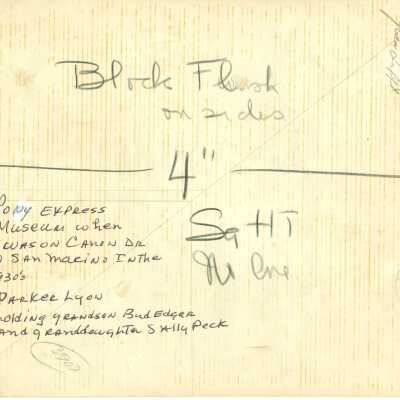 Block Flush
on sides
4"
Sq HT
No line
Pony Express
Museum when
it was on Canon Dr
San Marino in the
1930's
Parker Lyon
holding grandson Bud Edger
and granddaughter Sally Peck